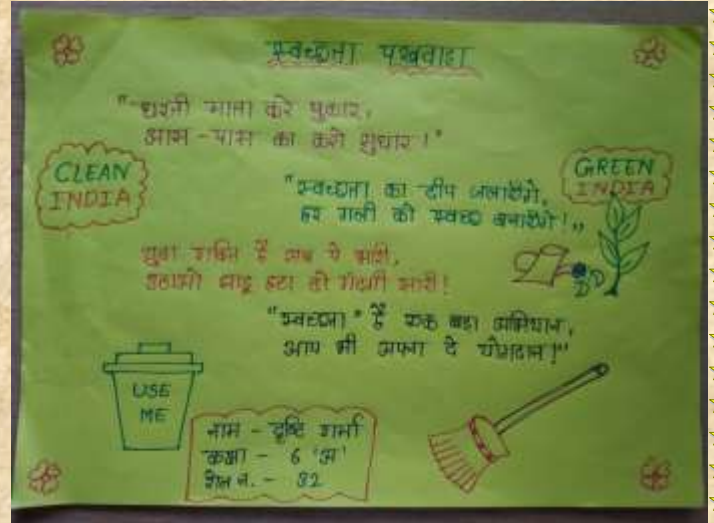 स्वच्छता पखवाडा
"धरती माता करे पुकार,
आस-पास का करो सुधार!"
CLEAN
INDIA
GREEN
INDIA
"स्वच्छता का दीप जलाएंगे,
हर गली को स्वच्छ बनाएंगे!,,
युवा शक्ति है सब पे भारी,
उठाओ झाड़ू हटा दो गंदगी सारी!
"स्वच्छता" है एक बड़ा अभियान,
आप भी अपना दे योगदान!"
USE
ME
नाम - दृष्टि शर्मा
कक्षा - 6 'अ'
रोल न. - 32